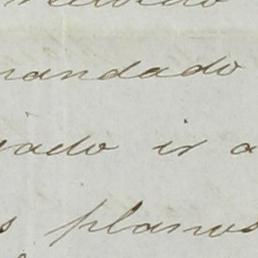 mandado
ado ir a
s planos